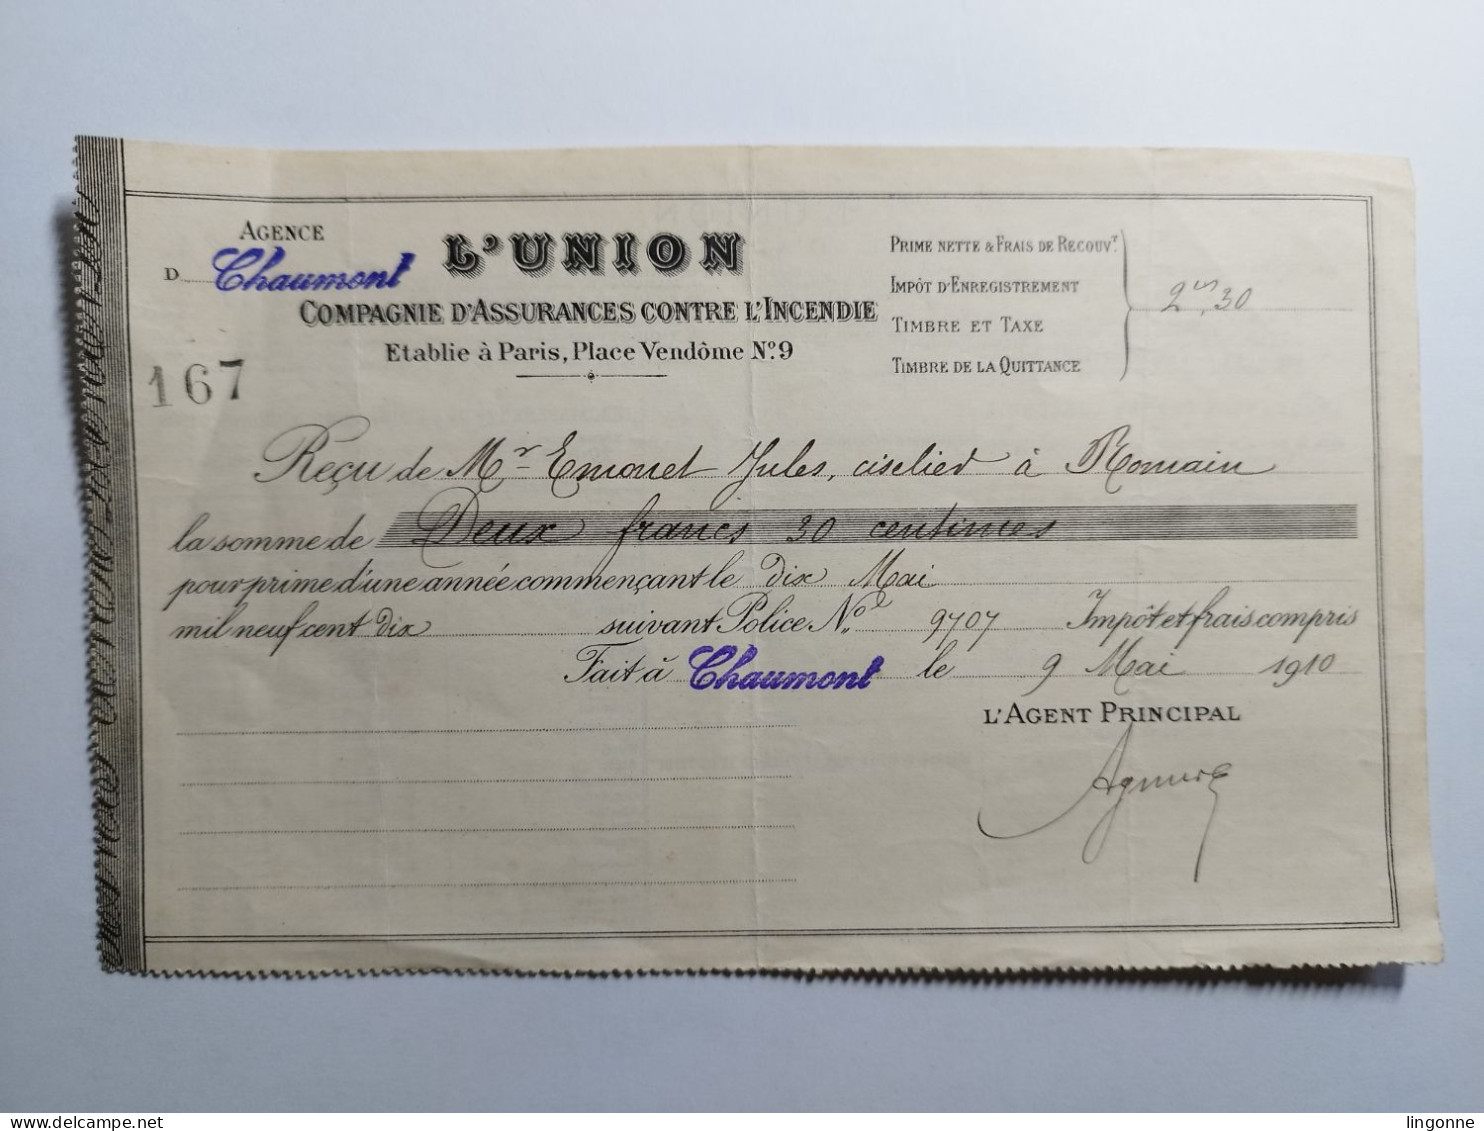 AGENCE
D Chaumont
L'UNION
COMPAGNIE D'ASSURANCES CONTRE L'INCENDIE
Etablie à Paris, Place Vendôme Nº 9
PRIME NETTE & FRAIS DE RECOUVT.
IMPÔT D'ENREGISTREMENT
TIMBRE ET TAXE
TIMBRE DE LA QUITTANCE
2,30
167
Reçu de Mr Emonet Jules, à Romain
la somme de Deux francs 30 centimes
pour prime d'une année commençant le dix Mai
mil neuf cent dix suivant Police No. 9707 Impôt et frais compris
Fait à Chaumont le 9 Mai 1910
L'AGENT PRINCIPAL
www.delcampe.net
lingonne